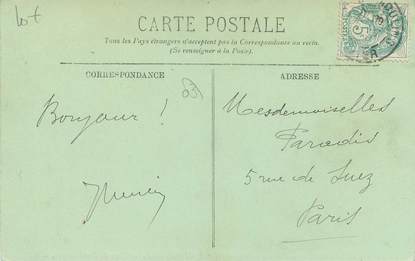 lot
CARTE POSTALE
Tous les Pays étrangers n'acceptent pas la Correspondance au recto.
(Se renseigner à la Poste).
CORRESPONDANCE
ADRESSE
Bonjour !
03
Mesdemoiselles
Paradis
5 rue de Suez
Paris